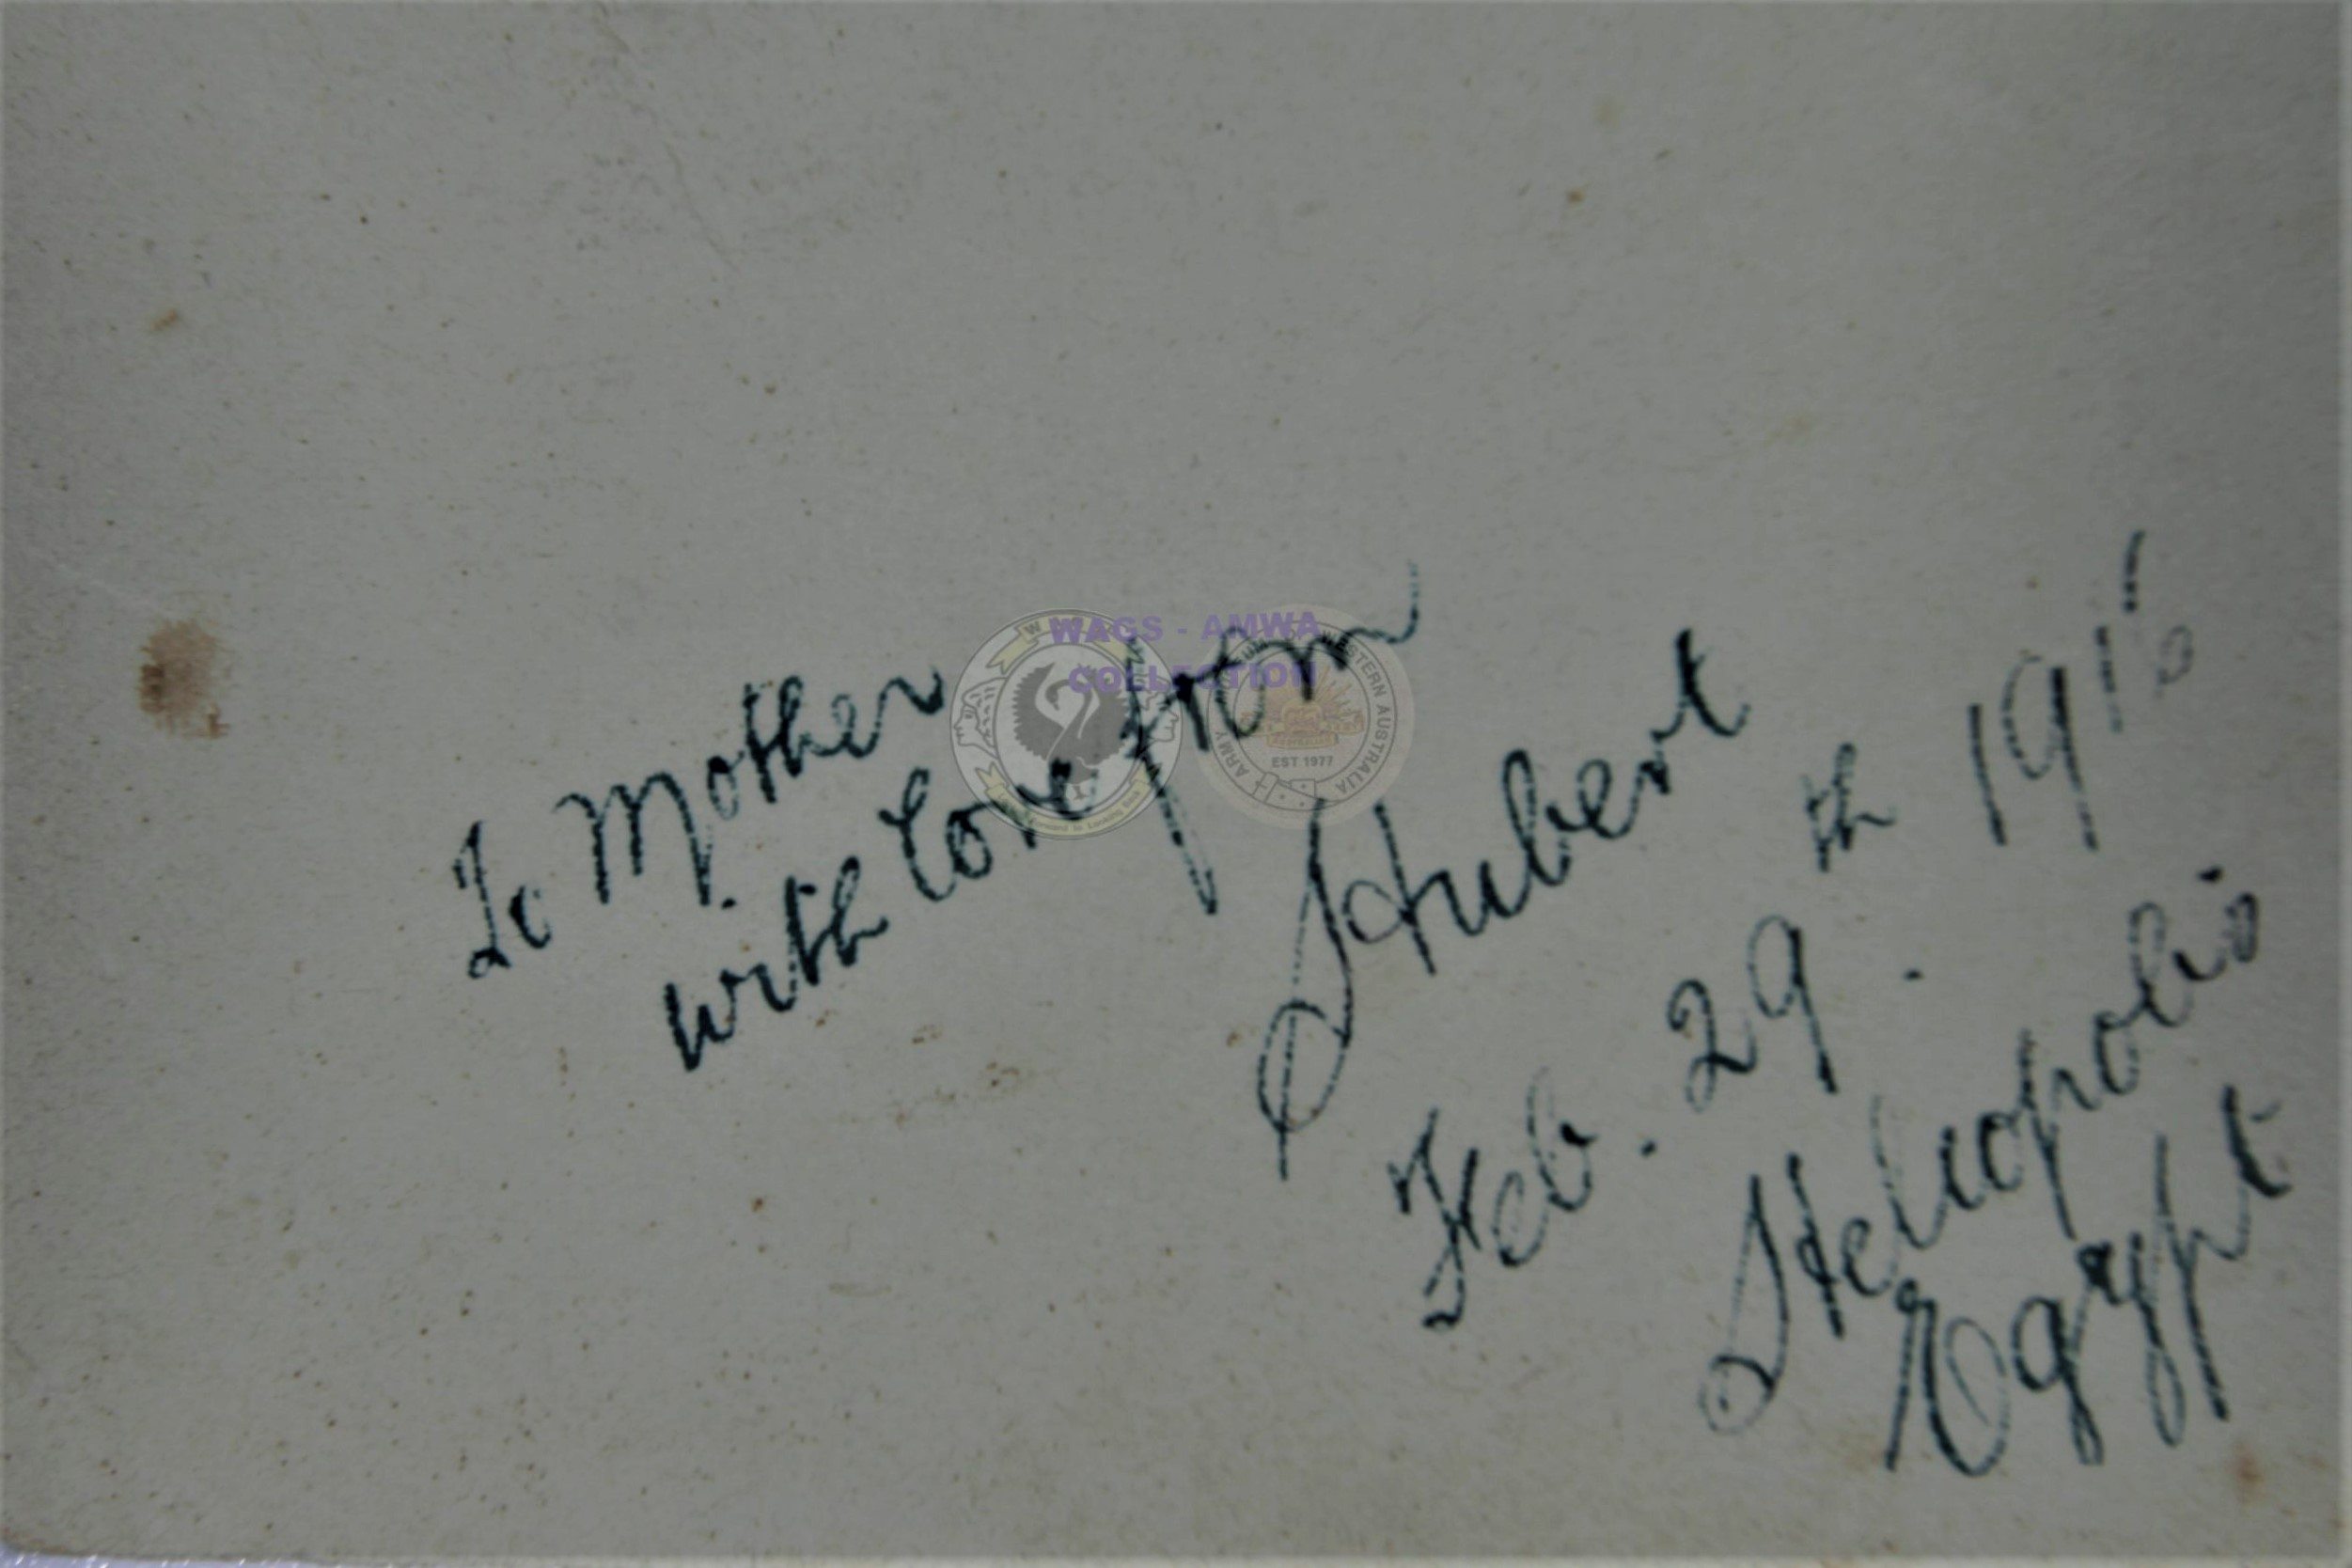 To Mother
with love from
Hubert
Feb. 29th. 1916
Heliopolis
Egypt
WAGS - AMWA
COLLECTION
EST 1977